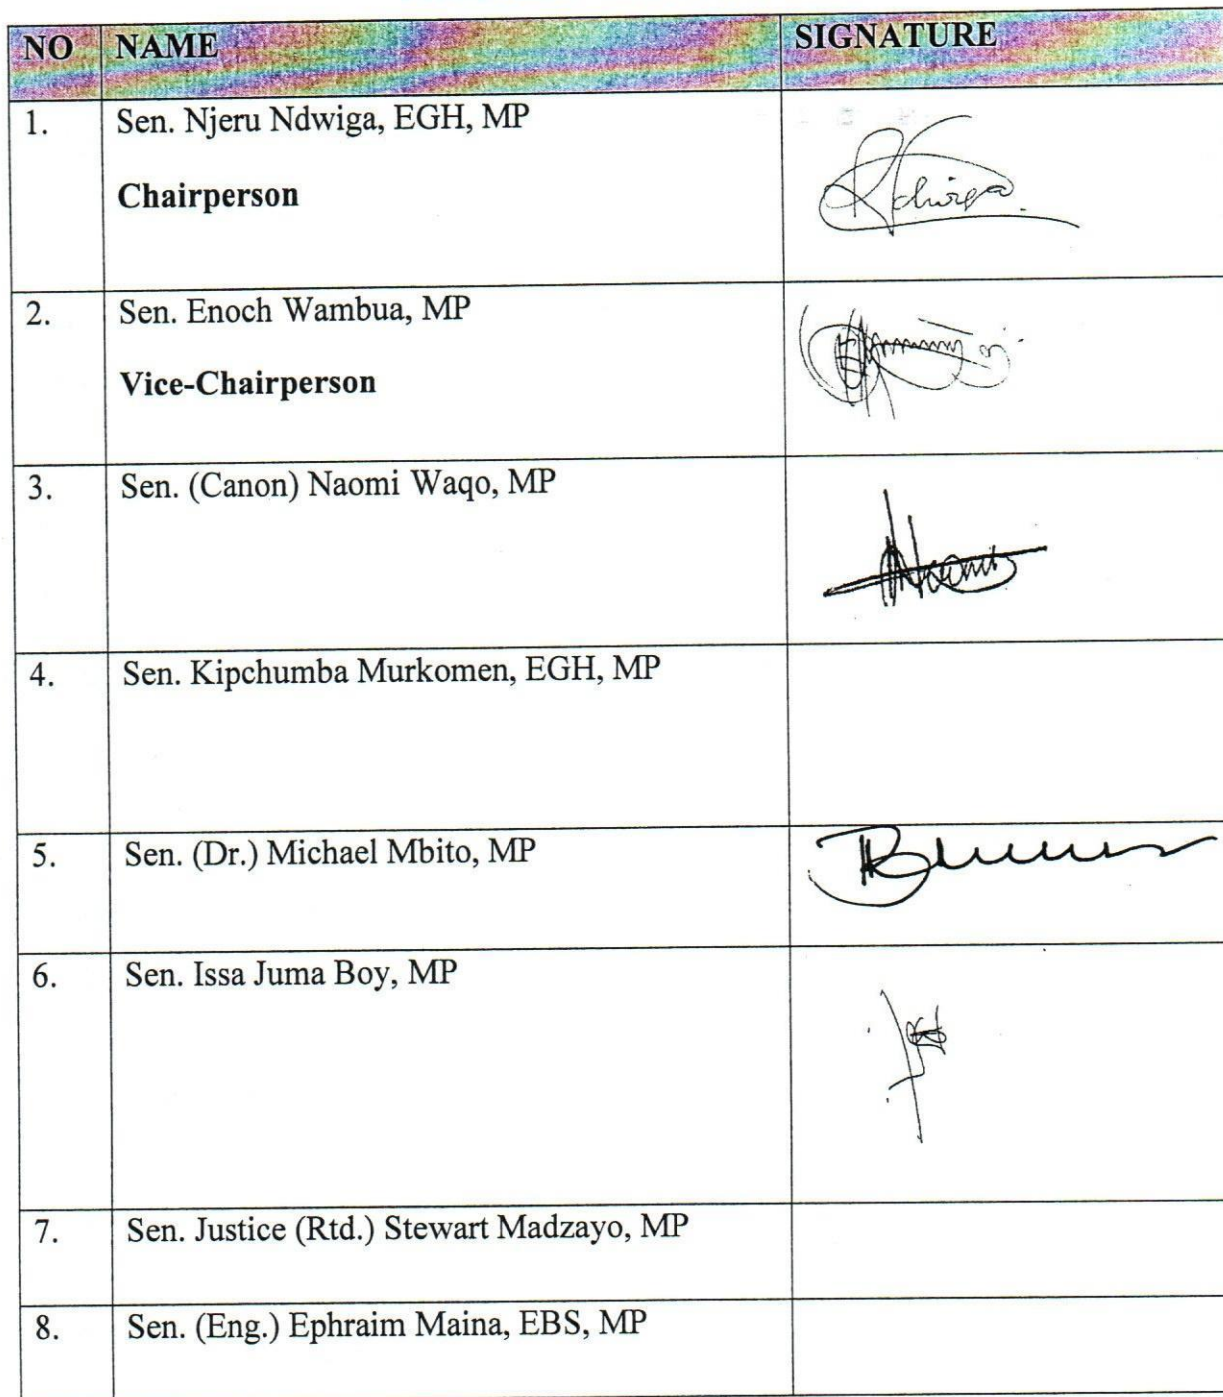 NO NAME SIGNATURE
1. Sen. Njeru Ndwiga, EGH, MP
Chairperson
2. Sen. Enoch Wambua, MP
Vice-Chairperson
3. Sen. (Canon) Naomi Waqo, MP
4. Sen. Kipchumba Murkomen, EGH, MP
5. Sen. (Dr.) Michael Mbito, MP
6. Sen. Issa Juma Boy, MP
7. Sen. Justice (Rtd.) Stewart Madzayo, MP
8. Sen. (Eng.) Ephraim Maina, EBS, MP